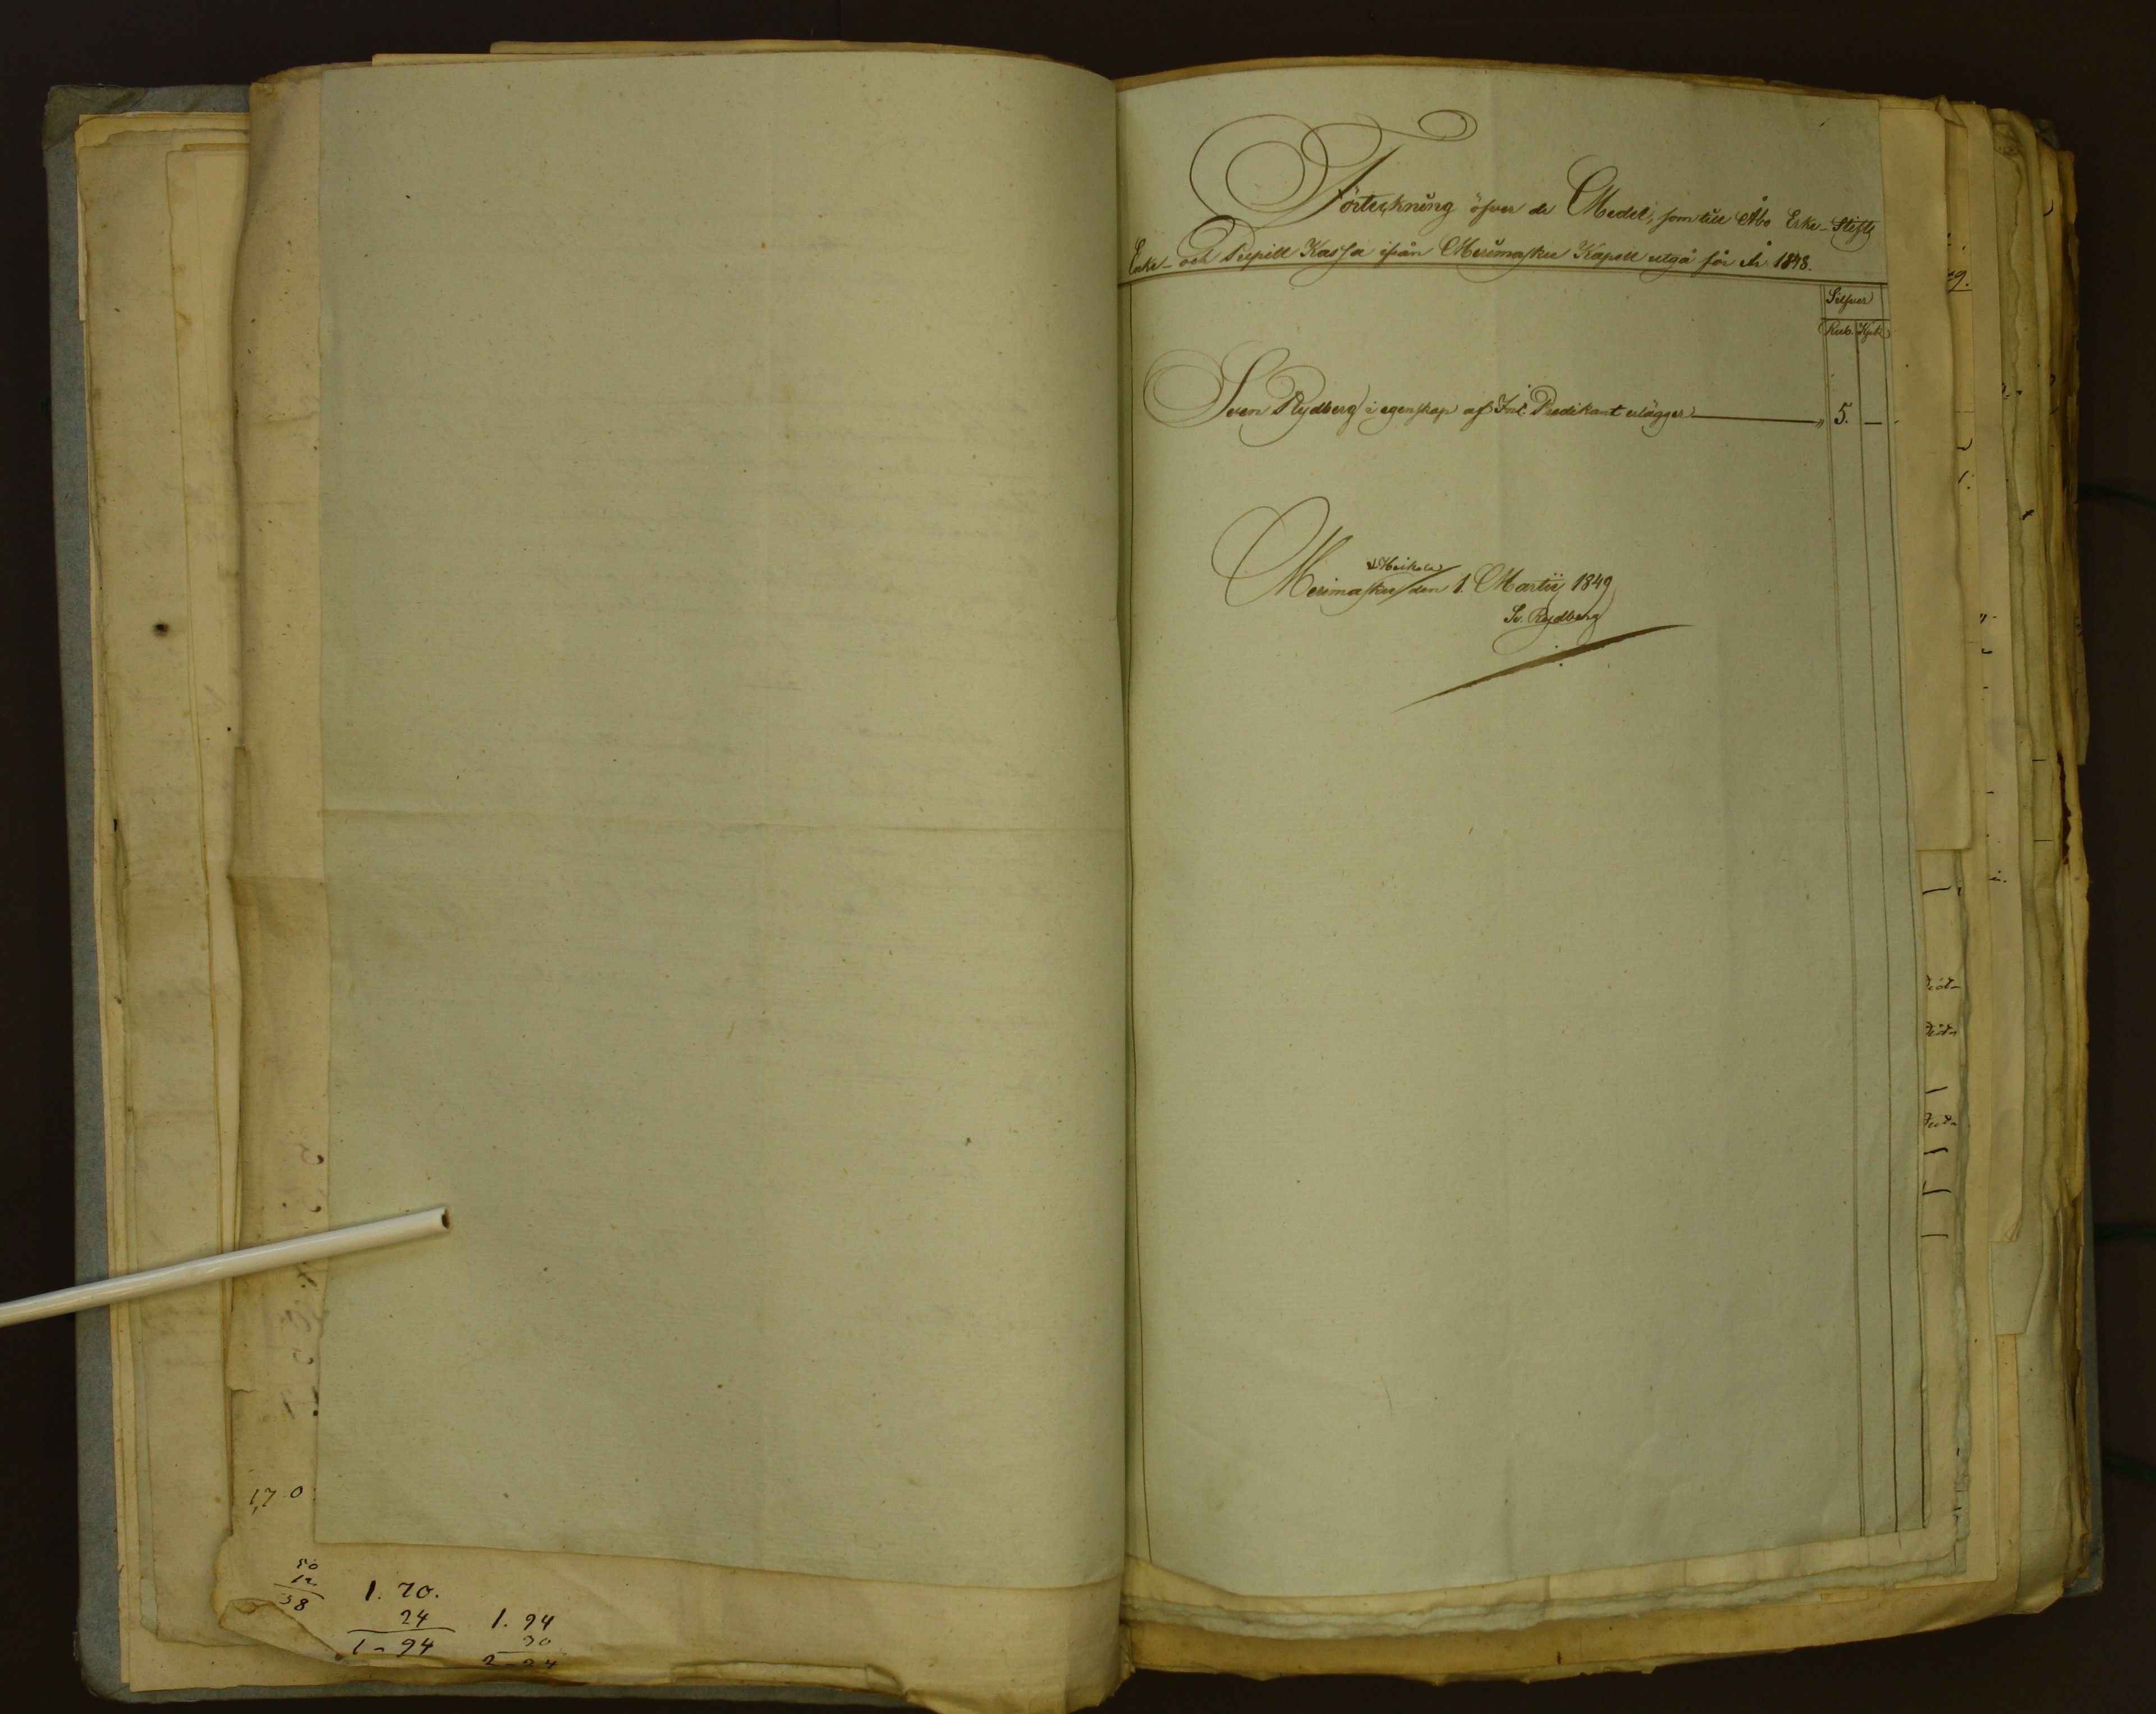 Förteckning öfver de Medel, som till Åbo Erke-Stifts
Enke- och Pupill Kassa ifrån Merimasku Kapell utgå för År 1848.
Silfver
Rub. Kop.
Sven Rydberg i egenskap af Predikant erlägger — " 5. —
Merimasku den 1. Martii 1849
Sv. Rydberg
1,7 0
50
12
38
1. 70.
24
1 - 94
1. 94
30
2 - 24